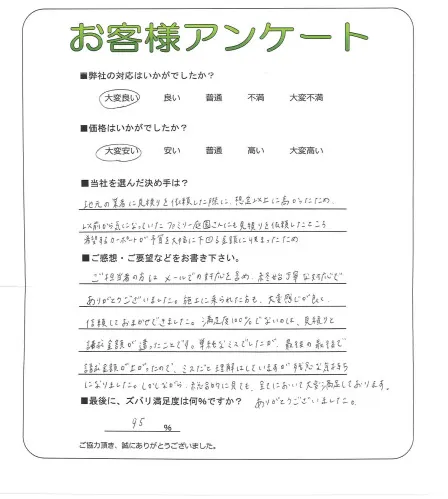 お客様アンケート
■弊社の対応はいかがでしたか？
大変良い 良い 普通 不満 大変不満
■価格はいかがでしたか？
大変安い 安い 普通 高い 大変高い
■当社を選んだ決め手は？
地元の業者に見積りを依頼した際に、想定以上に高かったため、
以前から気になっていたファミリー庭園さんにも見積りを依頼したところ
希望するカーポートが予算を大幅に下回る金額に収まったため
■ご感想・ご要望などをお書き下さい。
ご担当者の方はメールでの対応を含め、終始丁寧な対応で
ありがとうございました。施工に来られた方も、大変感じが良く、
信頼しておまかせできました。満足度100%でないのは、見積りと
請求金額が違ったことです。単純なミスでしたが、最後の最後で
請求金額が上がったので、ミスだと理解はしていますが残念な気持ち
になりました。しかしながら、総合的に見ても、全てにおいて大変満足しております。
■最後に、ズバリ満足度は何%ですか？ ありがとうございました。
95 %
ご協力頂き、誠にありがとうございました。